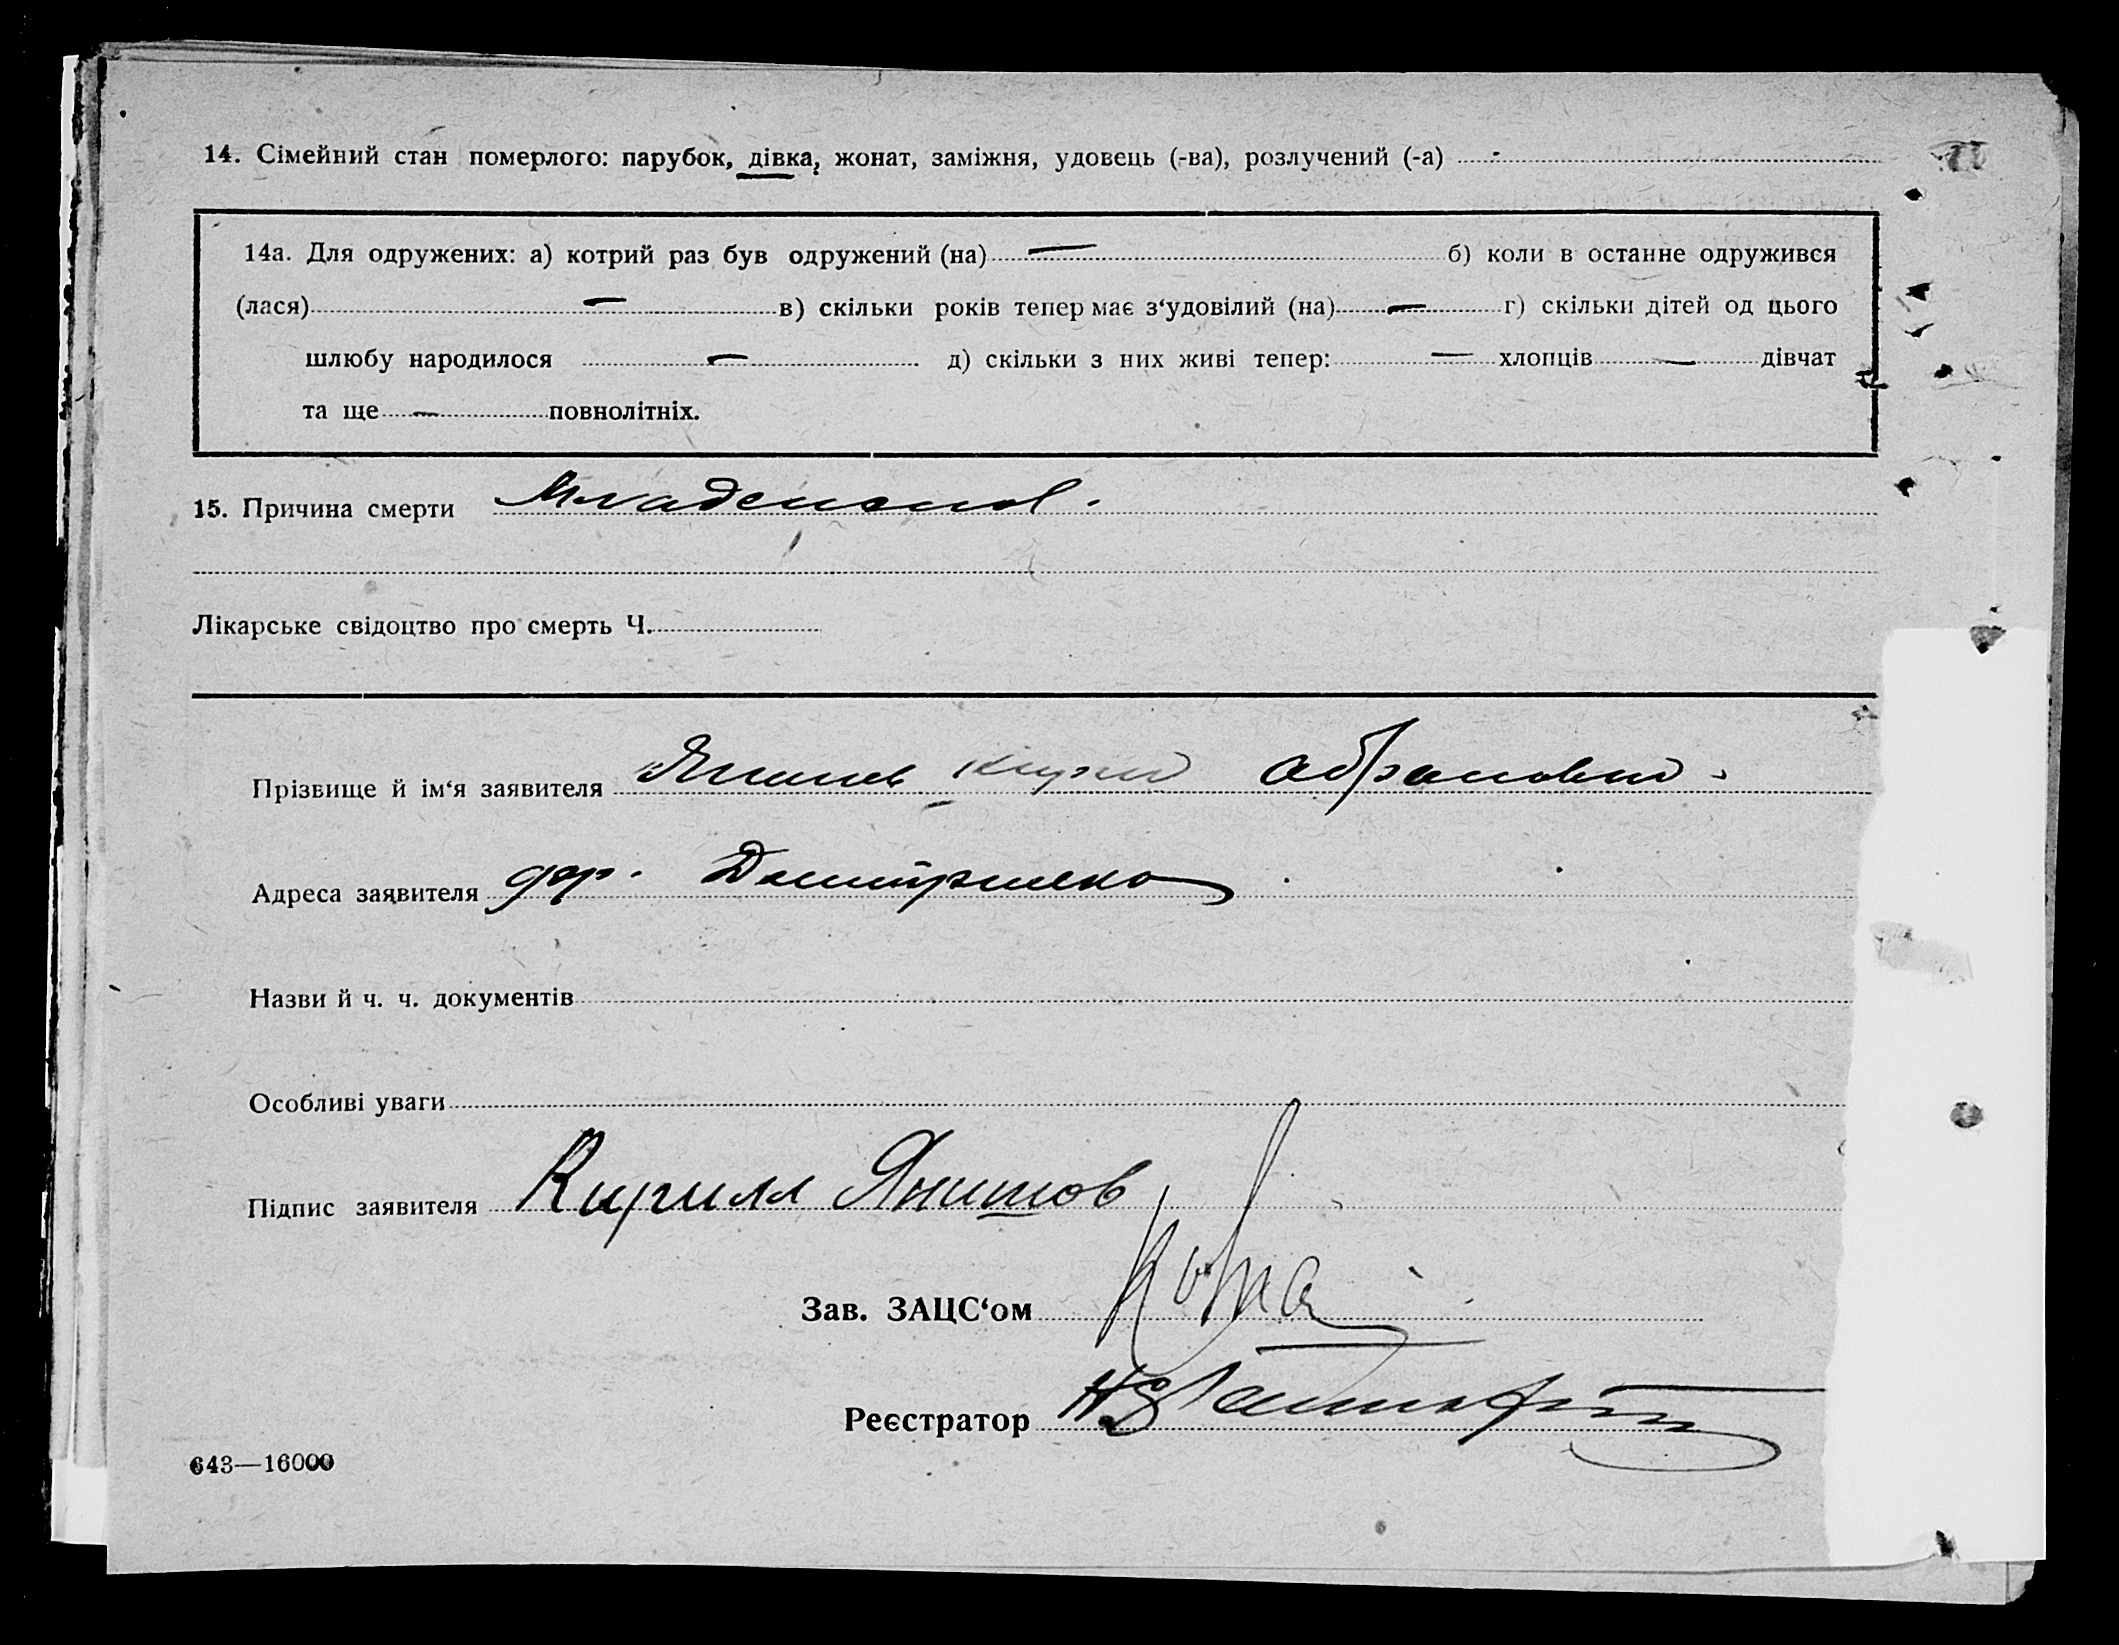 14. Сімейний стан померлого: парубок, дівка, жонат, заміжня, удовець (-ва), розлучений (-а)
14а. Для одружених: а) котрий раз був одружений (на) — б) коли в останнє одружився
(лася) — в) скільки років тепер має з‘удовілий (на) — г) скільки дітей од цього
шлюбу народилося — д) скільки з них живі тепер: — хлопців — дівчат
та ще — повнолітніх.
15. Причина смерти
Лікарське свідоцтво про смерть Ч.
Прізвище й ім‘я заявителя
Адреса заявителя
Назви й ч. ч. документів
Особливі уваги
Підпис заявителя Кирилл Янишов
Зав. ЗАЦС‘ом
Реєстратор
643—16000